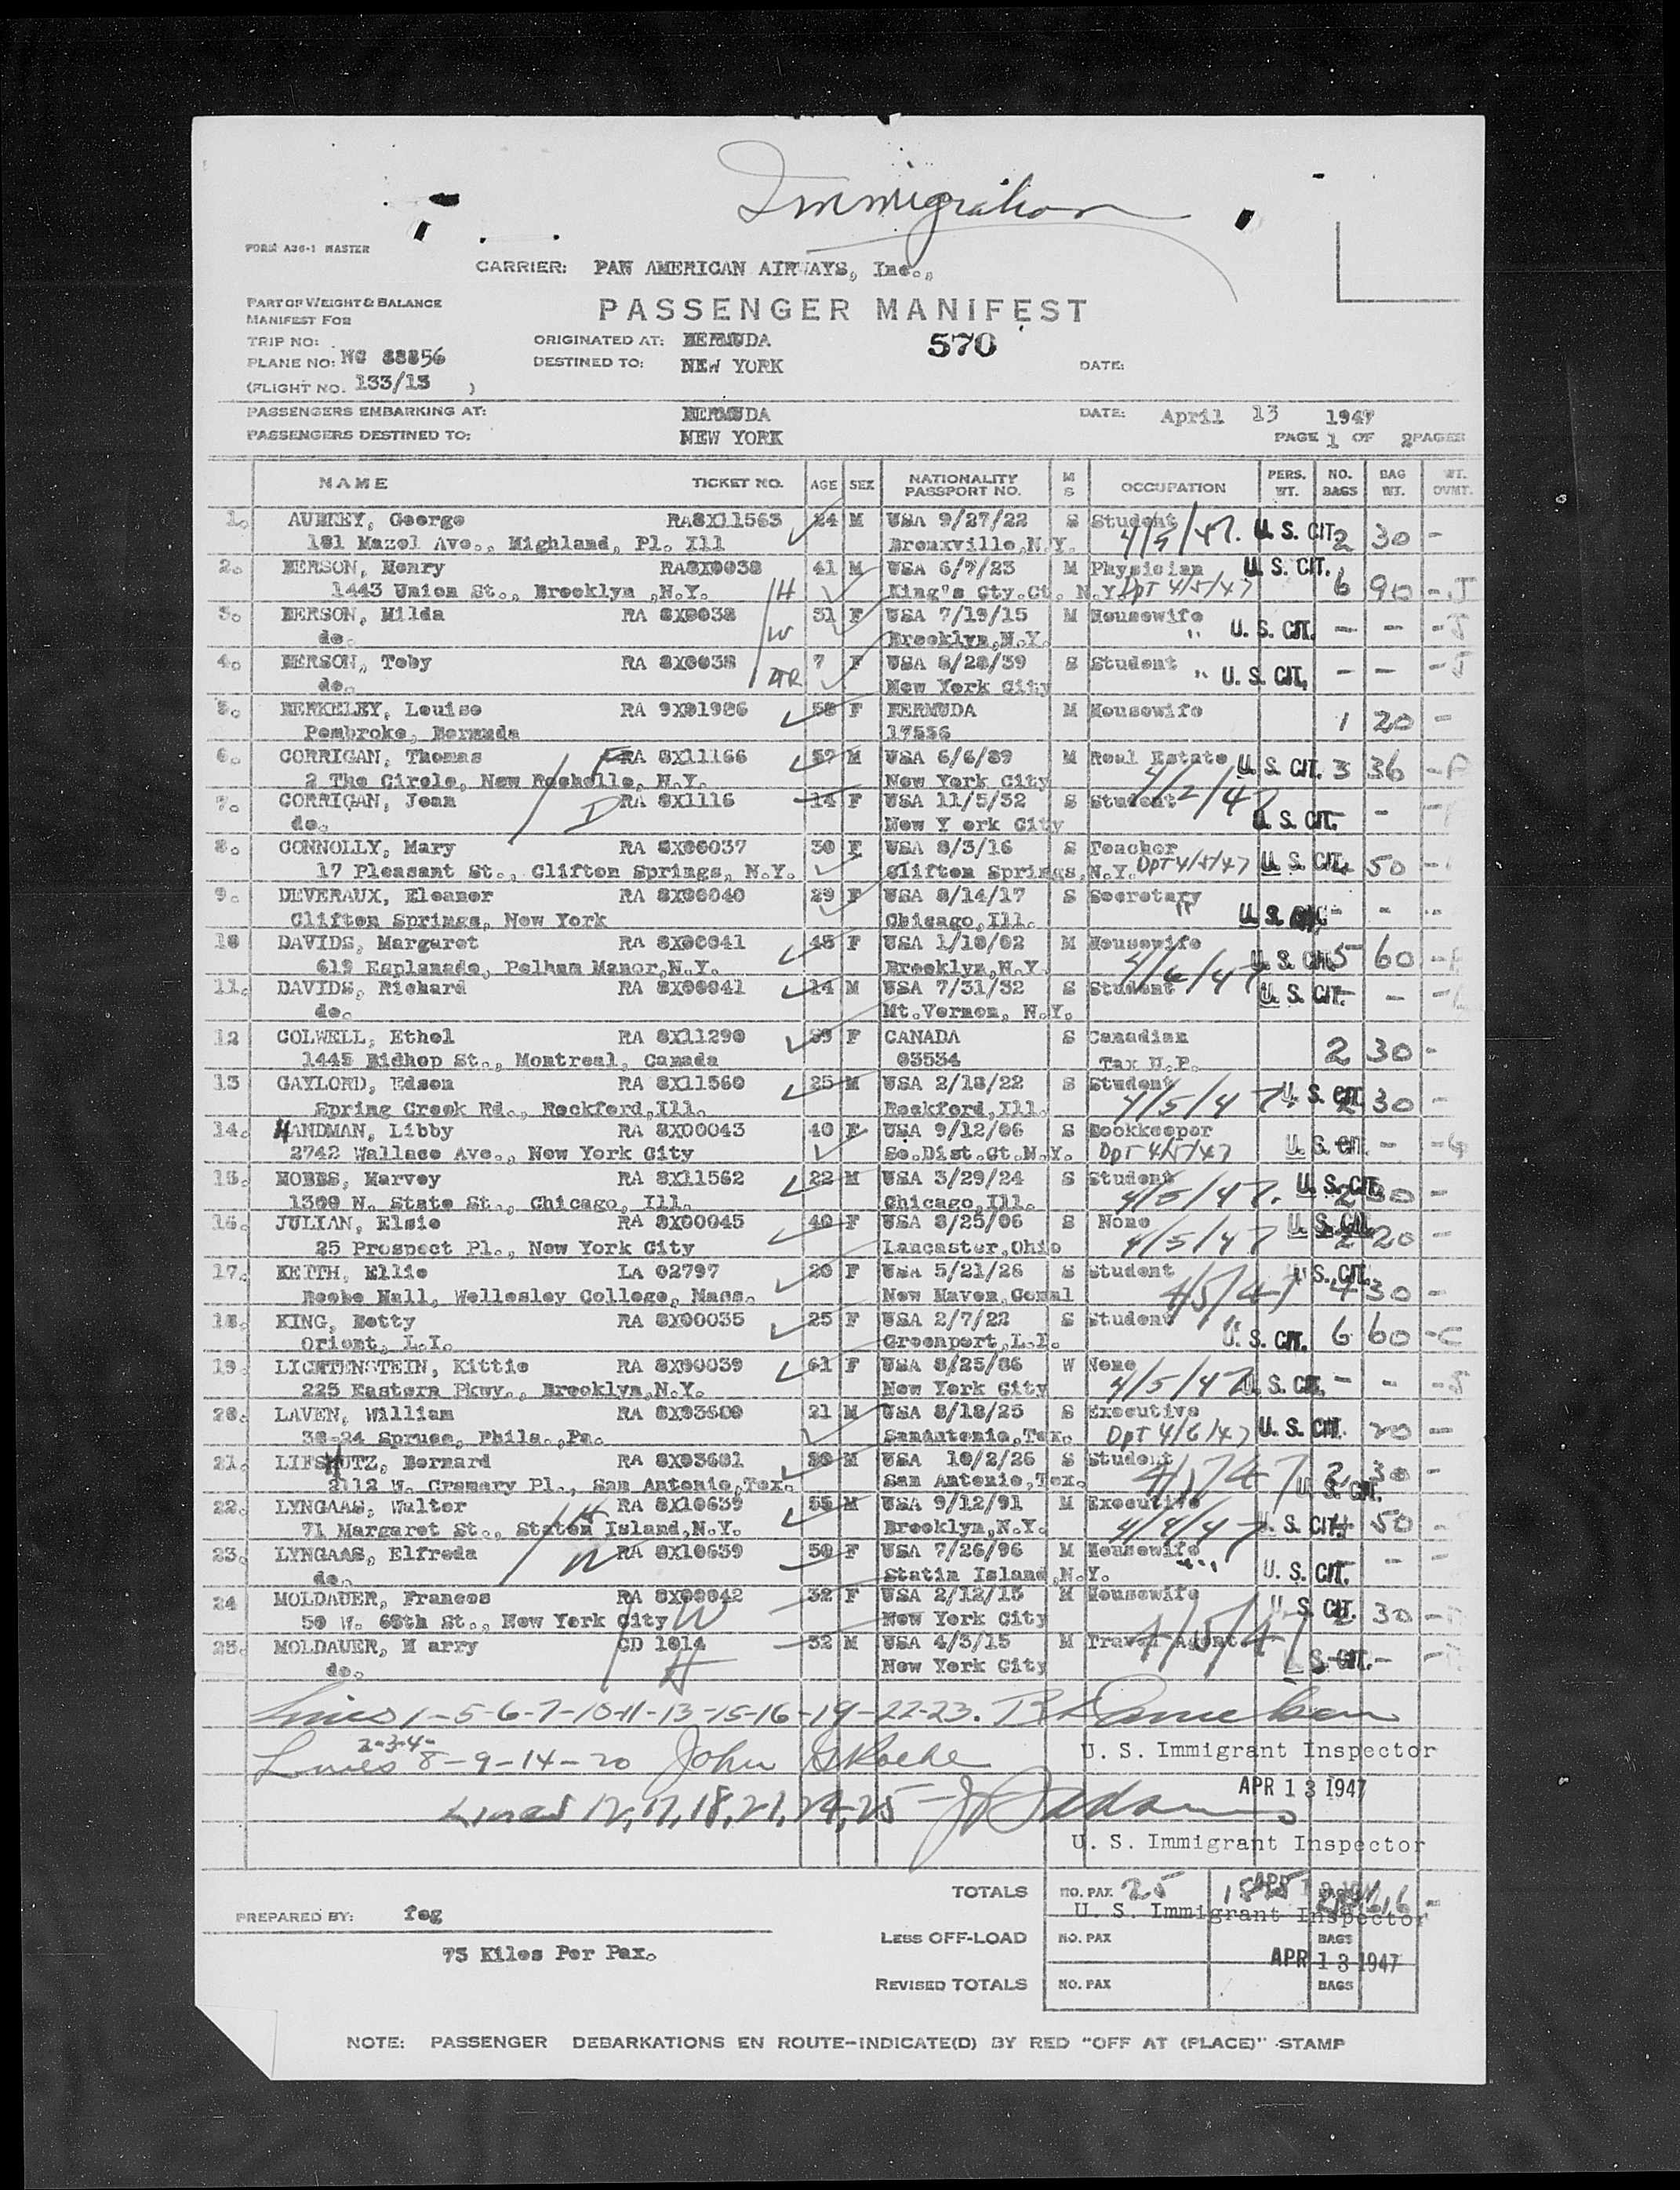 Immigration
FORM A36-1 MASTER
CARRIER: PAN AMERICAN AIRWAYS, Inc.,
PART OF WEIGHT & BALANCE
MANIFEST FOR
PASSENGER MANIFEST
TRIP NO:
ORIGINATED AT: BERMUDA
570
PLANE NO: NC 88856
DESTINED TO: NEW YORK
DATE:
(FLIGHT NO. 133/13 )
PASSENGERS EMBARKING AT: BERMUDA
DATE: April 13 1947
PASSENGERS DESTINED TO: NEW YORK
PAGE 1 OF 2 PAGES
NAME TICKET NO. AGE SEX NATIONALITY PASSPORT NO. M S OCCUPATION PERS. WT. NO. BAGS BAG WT. WT. OVWT.
1. AUBREY, George RA8X11563 24 M USA 9/27/22 S Student U. S. CIT. 2 30 -
181 Hazel Ave., Highland, Pl. Ill Bronxville,N.Y. 4/5/47.
2. BERSON, Henry RA8X0038 41 M USA 6/7/23 M Physician U. S. CIT. 6 90 - J
1443 Union St., Brooklyn ,N.Y. H King's Cty.Ct. N.Y. Dpt 4/5/47
3. BERSON, Hilda RA 8X0038 31 F USA 7/19/15 M Housewife U. S. CIT. - - -
do. W Brooklyn,N.Y. "
4. BERSON, Toby RA 8X0038 7 F USA 8/28/39 S Student " U. S. CIT. - - -
do. DTR New York City
5. BERKELEY, Louise RA 9X01986 58 F BERMUDA M Housewife 1 20 -
Pembroke, Bermuda 17556
6. CORRIGAN, Thomas F RA 8X11166 57 M USA 6/6/89 M Real Estate U. S. CIT. 3 36 -
2 The Circle, New Rochelle, N.Y. New York City 4/2/47
7. CORRIGAN, Joan D RA 8X1116 14 F USA 11/5/32 S Student U. S. CIT. - - -
do. New Y ork City
8. CONNOLLY, Mary RA 8X00037 30 F USA 8/3/16 S Teacher U. S. CIT. 4 50 -
17 Pleasant St., Clifton Springs, N.Y. Clifton Springs,N.Y. Dpt 4/5/47
9. DEVERAUX, Eleanor RA 8X00040 29 F USA 8/14/17 S Secretary U. S. CIT. - - -
Clifton Springs, New York Chicago,Ill. "
10 DAVIDS, Margaret RA 8X00041 45 F USA 1/10/02 M Housewife U. S. CIT. 5 60 -
619 Esplanade, Pelham Manor,N.Y. Brooklyn,N.Y. 4/6/47
11. DAVIDS, Richard RA 8X00041 14 M USA 7/31/32 S Student U. S. CIT. - - -
do. Mt.Vernon, N.Y.
12 COLWELL, Ethel RA 8X11290 59 F CANADA S Canadian 2 30 -
1445 Bidhop St., Montreal, Canada 03534 Tax U.P.
13 GAYLORD, Edson RA 8X11560 25 M USA 2/18/22 S Student U. S. CIT. 2 30 -
Spring Creek Rd., Rockford,Ill. Rockford,Ill. 4/5/47
14. HANDMAN, Libby RA 8X00043 40 F USA 9/12/06 S Bookkeeper U. S. CIT. - -
2742 Wallace Ave., New York City So.Dist.Ct.N.Y. Dpt 4/5/47
15. HOBBS, Harvey RA 8X11562 22 M USA 3/29/24 S Student U. S. CIT. 2 30 -
1300 N. State St., Chicago, Ill. Chicago,Ill. 4/5/47.
16. JULIAN, Elsie RA 8X00045 40 F USA 8/25/06 S None U. S. CIT. 2 20 -
25 Prospect Pl., New York City Lancaster,Ohio 4/5/47
17. KEITH, Ellie LA 02797 20 F USA 5/21/26 S Student U. S. CIT. 4 30 -
Beebe Hall, Wellesley College, Mass. New Haven,Connl 4/5/47
18. KING, Betty RA 8X00035 25 F USA 2/7/22 S Student U. S. CIT. 6 60 - C
Orient, L.I. Greenport,L.I. "
19. LICHTENSTEIN, Kittie RA 8X00039 61 F USA 8/25/86 W None U. S. CIT. - - -
225 Eastern Pkwy., Brooklyn,N.Y. New York City 4/5/47
20. LAVEN, William RA 8X03600 21 M USA 8/18/25 S Executive U. S. CIT. 20 -
38-24 Spruce, Phila.,Pa. SanAntonio,Tex. Dpt 4/6/47
21. LIFSHUTZ, Bernard RA 8X03601 20 M USA 10/2/26 S Student U. S. CIT. 2 30 -
2112 W. Cramery Pl., San Antonio,Tex. San Antonio,Tex. 4/5/47
22. LYNGAAS, Walter H RA 8X10639 55 M USA 9/12/91 M Executive U. S. CIT. 4 50 -
71 Margaret St., Staten Island,N.Y. Brooklyn,N.Y. 4/4/47
23. LYNGAAS, Elfreda W RA 8X10639 50 F USA 7/26/96 M Housewife U. S. CIT. - -
do. Statin Island,N.Y. "
24 MOLDAUER, Frances RA 8X00042 32 F USA 2/12/15 M Housewife U. S. CIT. 2 30 -
50 W. 68th St., New York City W New York City
25. MOLDAUER, H arry CD 1014 32 M USA 4/3/15 M Travel Agent 4/5/47 U. S. CIT. - -
do. H New York City
Lines 1-5-6-7-10-11-13-15-16-19-22-23.
2-3-4-
Lines 8-9-14-20 John G Roche
U. S. Immigrant Inspector
APR 13 1947
Lines 12, 17, 18, 21, 24, 25 -
U. S. Immigrant Inspector
TOTALS NO. PAX 25 BAGS
PREPARED BY: feg
U. S. Immigrant Inspector
LESS OFF-LOAD NO. PAX BAGS
75 Kilos Per Pax.
APR 13 1947
REVISED TOTALS NO. PAX BAGS
NOTE: PASSENGER DEBARKATIONS EN ROUTE-INDICATE(D) BY RED "OFF AT (PLACE)" STAMP